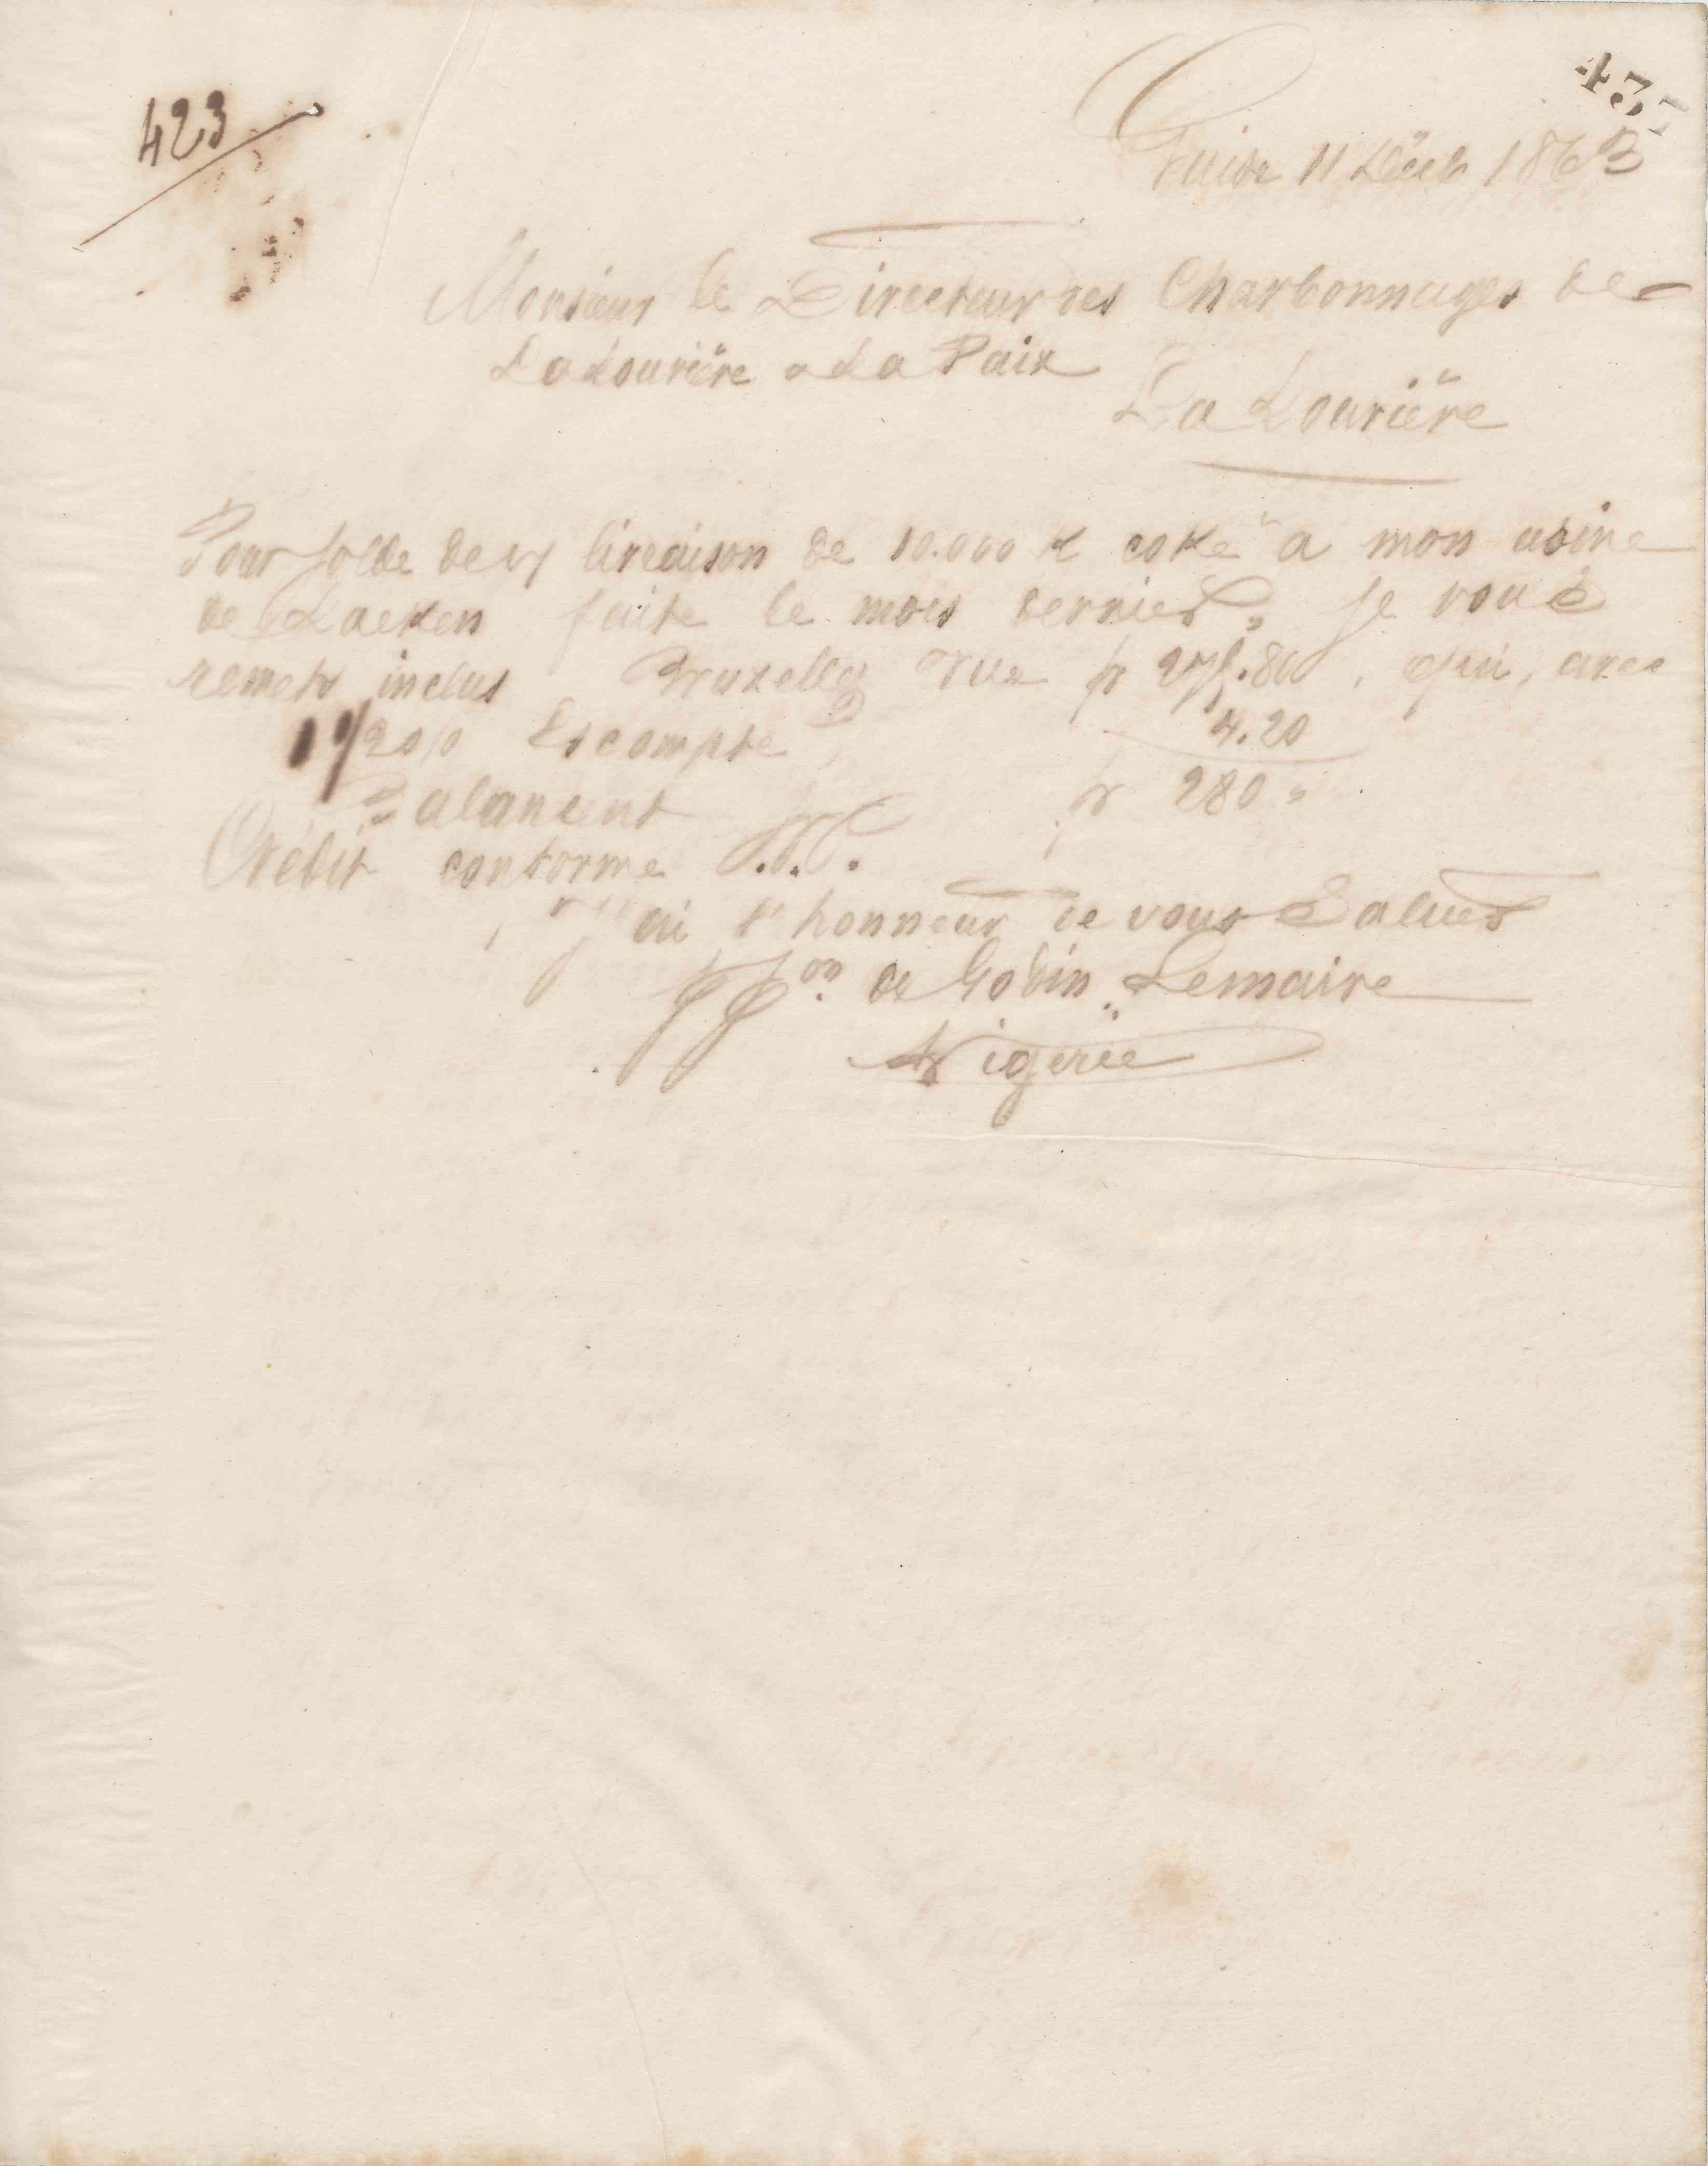 423
Guise 11 Déceb 1863
Monsieur le Directeur des Charbonnages de
La Louvière & La Paix
La Louvière
Pour solde de v/ livraison de 10.000 K coke à mon usine
de Laeken faite le mois dernier, je vous
remets inclus Bruxelles vue fr 275.80, qui, avec
1 1/2 0/0 Escompte 4.20
Balancent fr 280 "
Crédit conforme S.V.P.
J'ai l'honneur de vous Saluer
pp on de Godin Lemaire